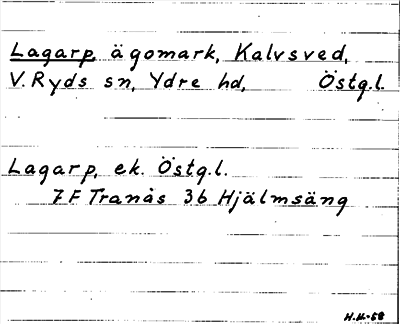 Lagarp, ägomark, Kalvsved,
V. Ryds sn, Ydre hd, Östg.l.
Lagarp, ek. Östg.l.
7 F Tranås 3b Hjälmsäng
H.K-58